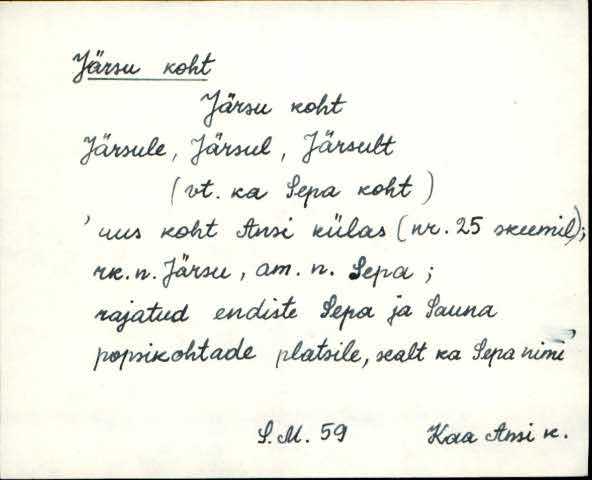 Järsu koht
Järsu koht
Järsule, Järsul, Järsult
(vt. ka Sepa koht)
'uus koht Ansi külas (nr. 25 skeemil);
rk. n. Järsu, am. n. Sepa;
rajatud endiste Sepa ja Sauna
popsikohtade platsile, sealt ka Sepa nimi'
S.M. 59 Kaa Ansi k.